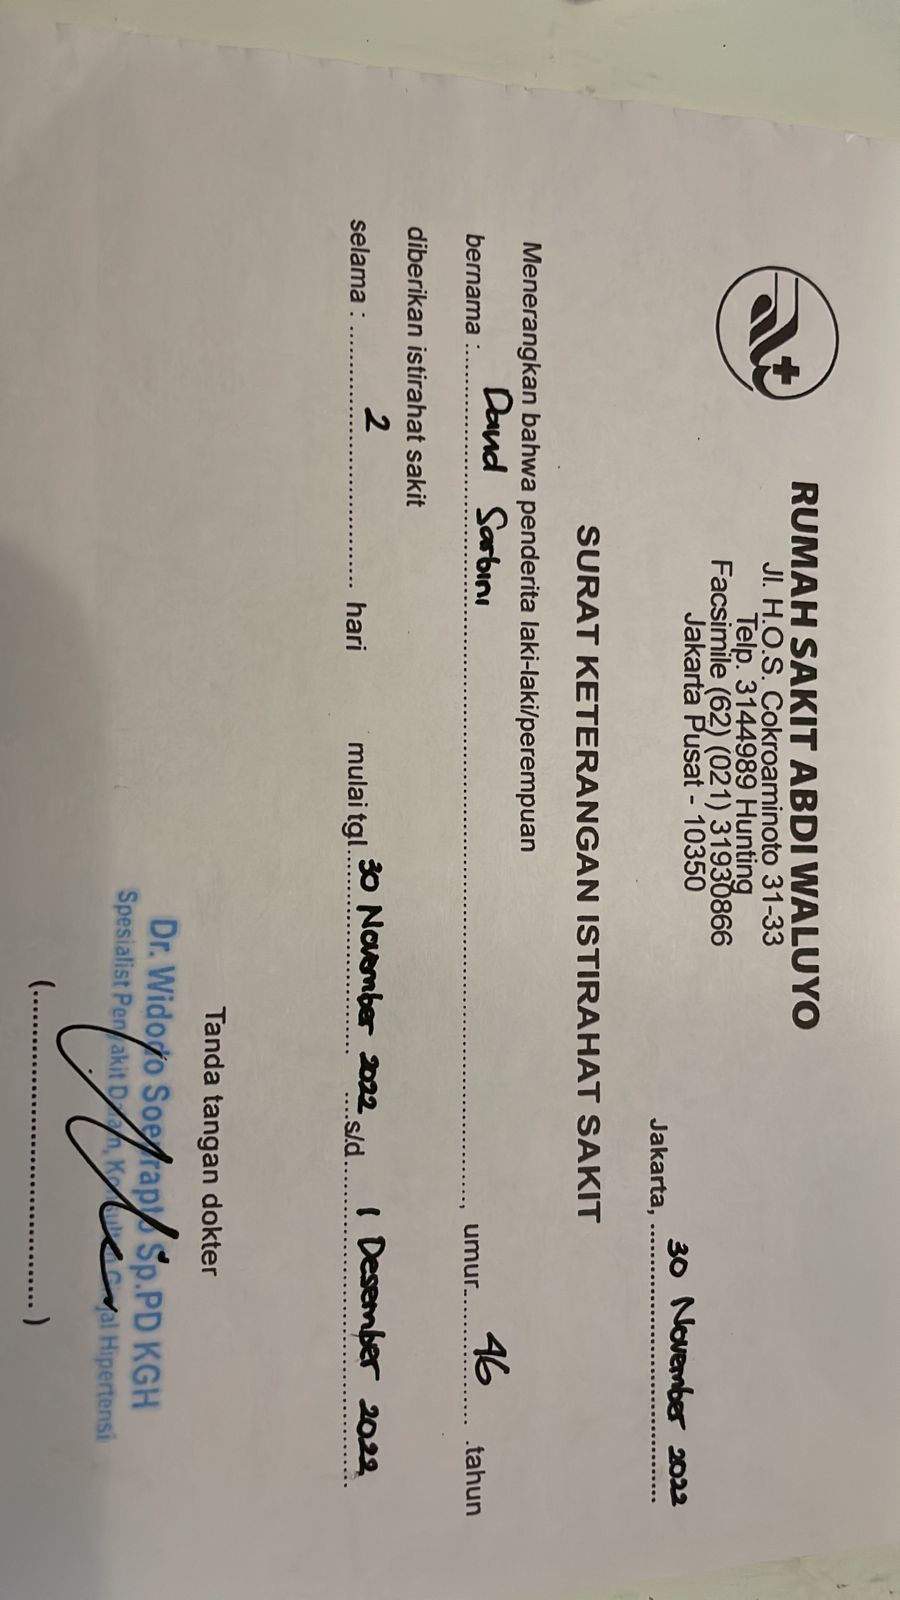 RUMAH SAKIT ABDI WALUYO
Jl. H.O.S. Cokroaminoto 31-33
Telp. 3144989 Hunting
Facsimile (62) (021) 31930866
Jakarta Pusat - 10350
Jakarta, 30 November 2022
SURAT KETERANGAN ISTIRAHAT SAKIT
Menerangkan bahwa penderita laki-laki/perempuan
bernama : David Sarbini, umur 46 tahun
diberikan istirahat sakit
selama : 2 hari mulai tgl 30 November 2022 s/d 1 Desember 2022
Tanda tangan dokter
Dr. Widodo Soemrapto Sp.PD KGH
Spesialist Penyakit Dalam, Konsultan Ginjal Hipertensi
(..............................)